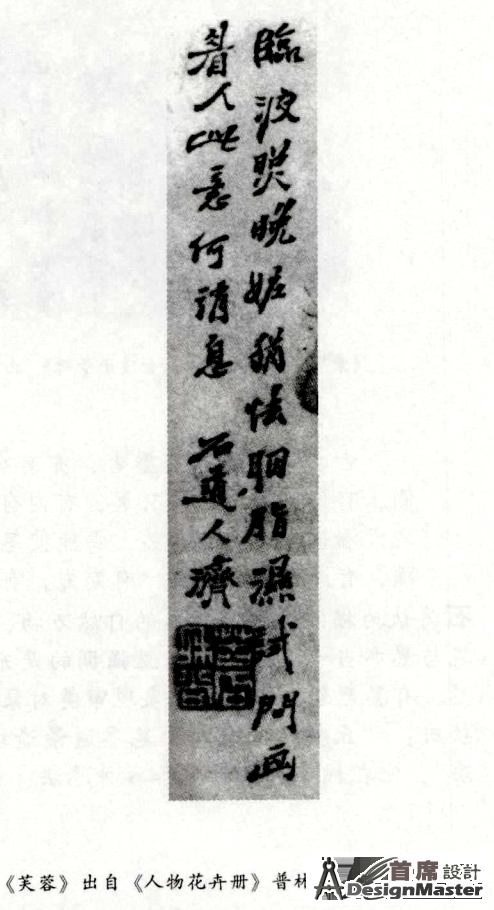 臨波映晚妝稍怯胭脂濕試問画
眉人此意何消息 石道人濟
苦瓜和尚
《芙蓉》出自《人物花卉册》普林
首席設計
DesignMaster